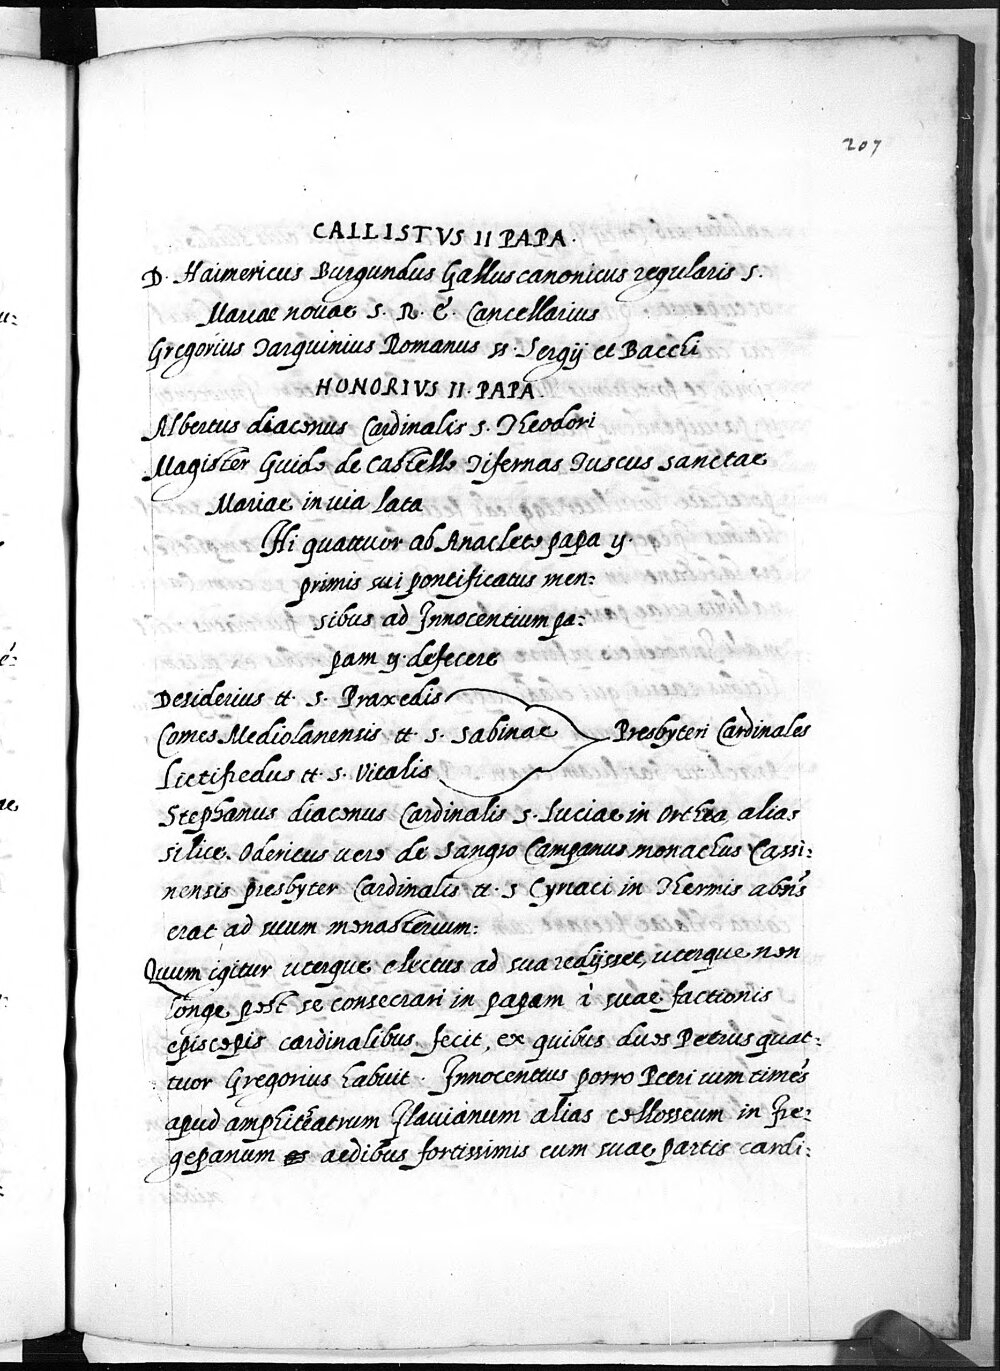 207
CALLISTVS II PAPA.
D. Haimericus Burgundus Gallus canonicus regularis s.
Mariae nouae S. R. E. Cancellarius
Gregorius Tarquinius Romanus ss. Sergij et Bacchi
HONORIVS II. PAPA.
Albertus diaconus Cardinalis s. Theodori
Magister Guido de Castello Tifernas Tuscus sanctae
Mariae in uia lata
Hi quattuor ab Anacleto papa ij.
primis sui pontificatus men:
sibus ad Innocentium pa:
pam ij. defecere
Desiderius tt. s. Praxedis
Comes Mediolanensis tt. s. Sabinae Presbyteri Cardinales
Lictifredus tt. s. Vitalis
Stephanus diaconus Cardinalis s. Luciae in Orthea alias
silice. Odericus uero de Sangro Campanus monachus Cassi:
nensis presbyter Cardinalis tt. s Cyriaci in Thermis abns
erat ad suum monasterium:
Quum igitur uterque electus ad sua redijsset, uterque non
longe post se consecrari in papam à suae factionis
episcopis cardinalibus fecit, ex quibus duos Petrus quat:
tuor Gregorius habuit. Innocentius porro Petri uim times
apud amphiteatrum Flauianum alias collosseum in Fre:
gepanum aedibus fortissimis cum suae partis cardi: